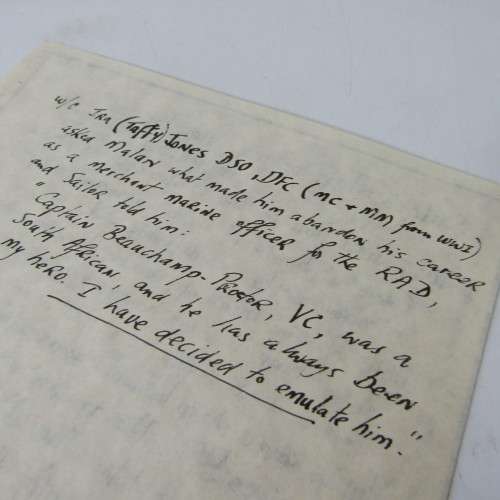 W/C IRA (Taffy) JONES DSO, DFC (MC + MM from WWI)
asked Malan what made him abandon his career
as a merchant marine officer for the RAD,
and Sailor told him:
"Captain Beauchamp-Proctor, VC, was a
South African, and he has always been
my hero. I have decided to emulate him."